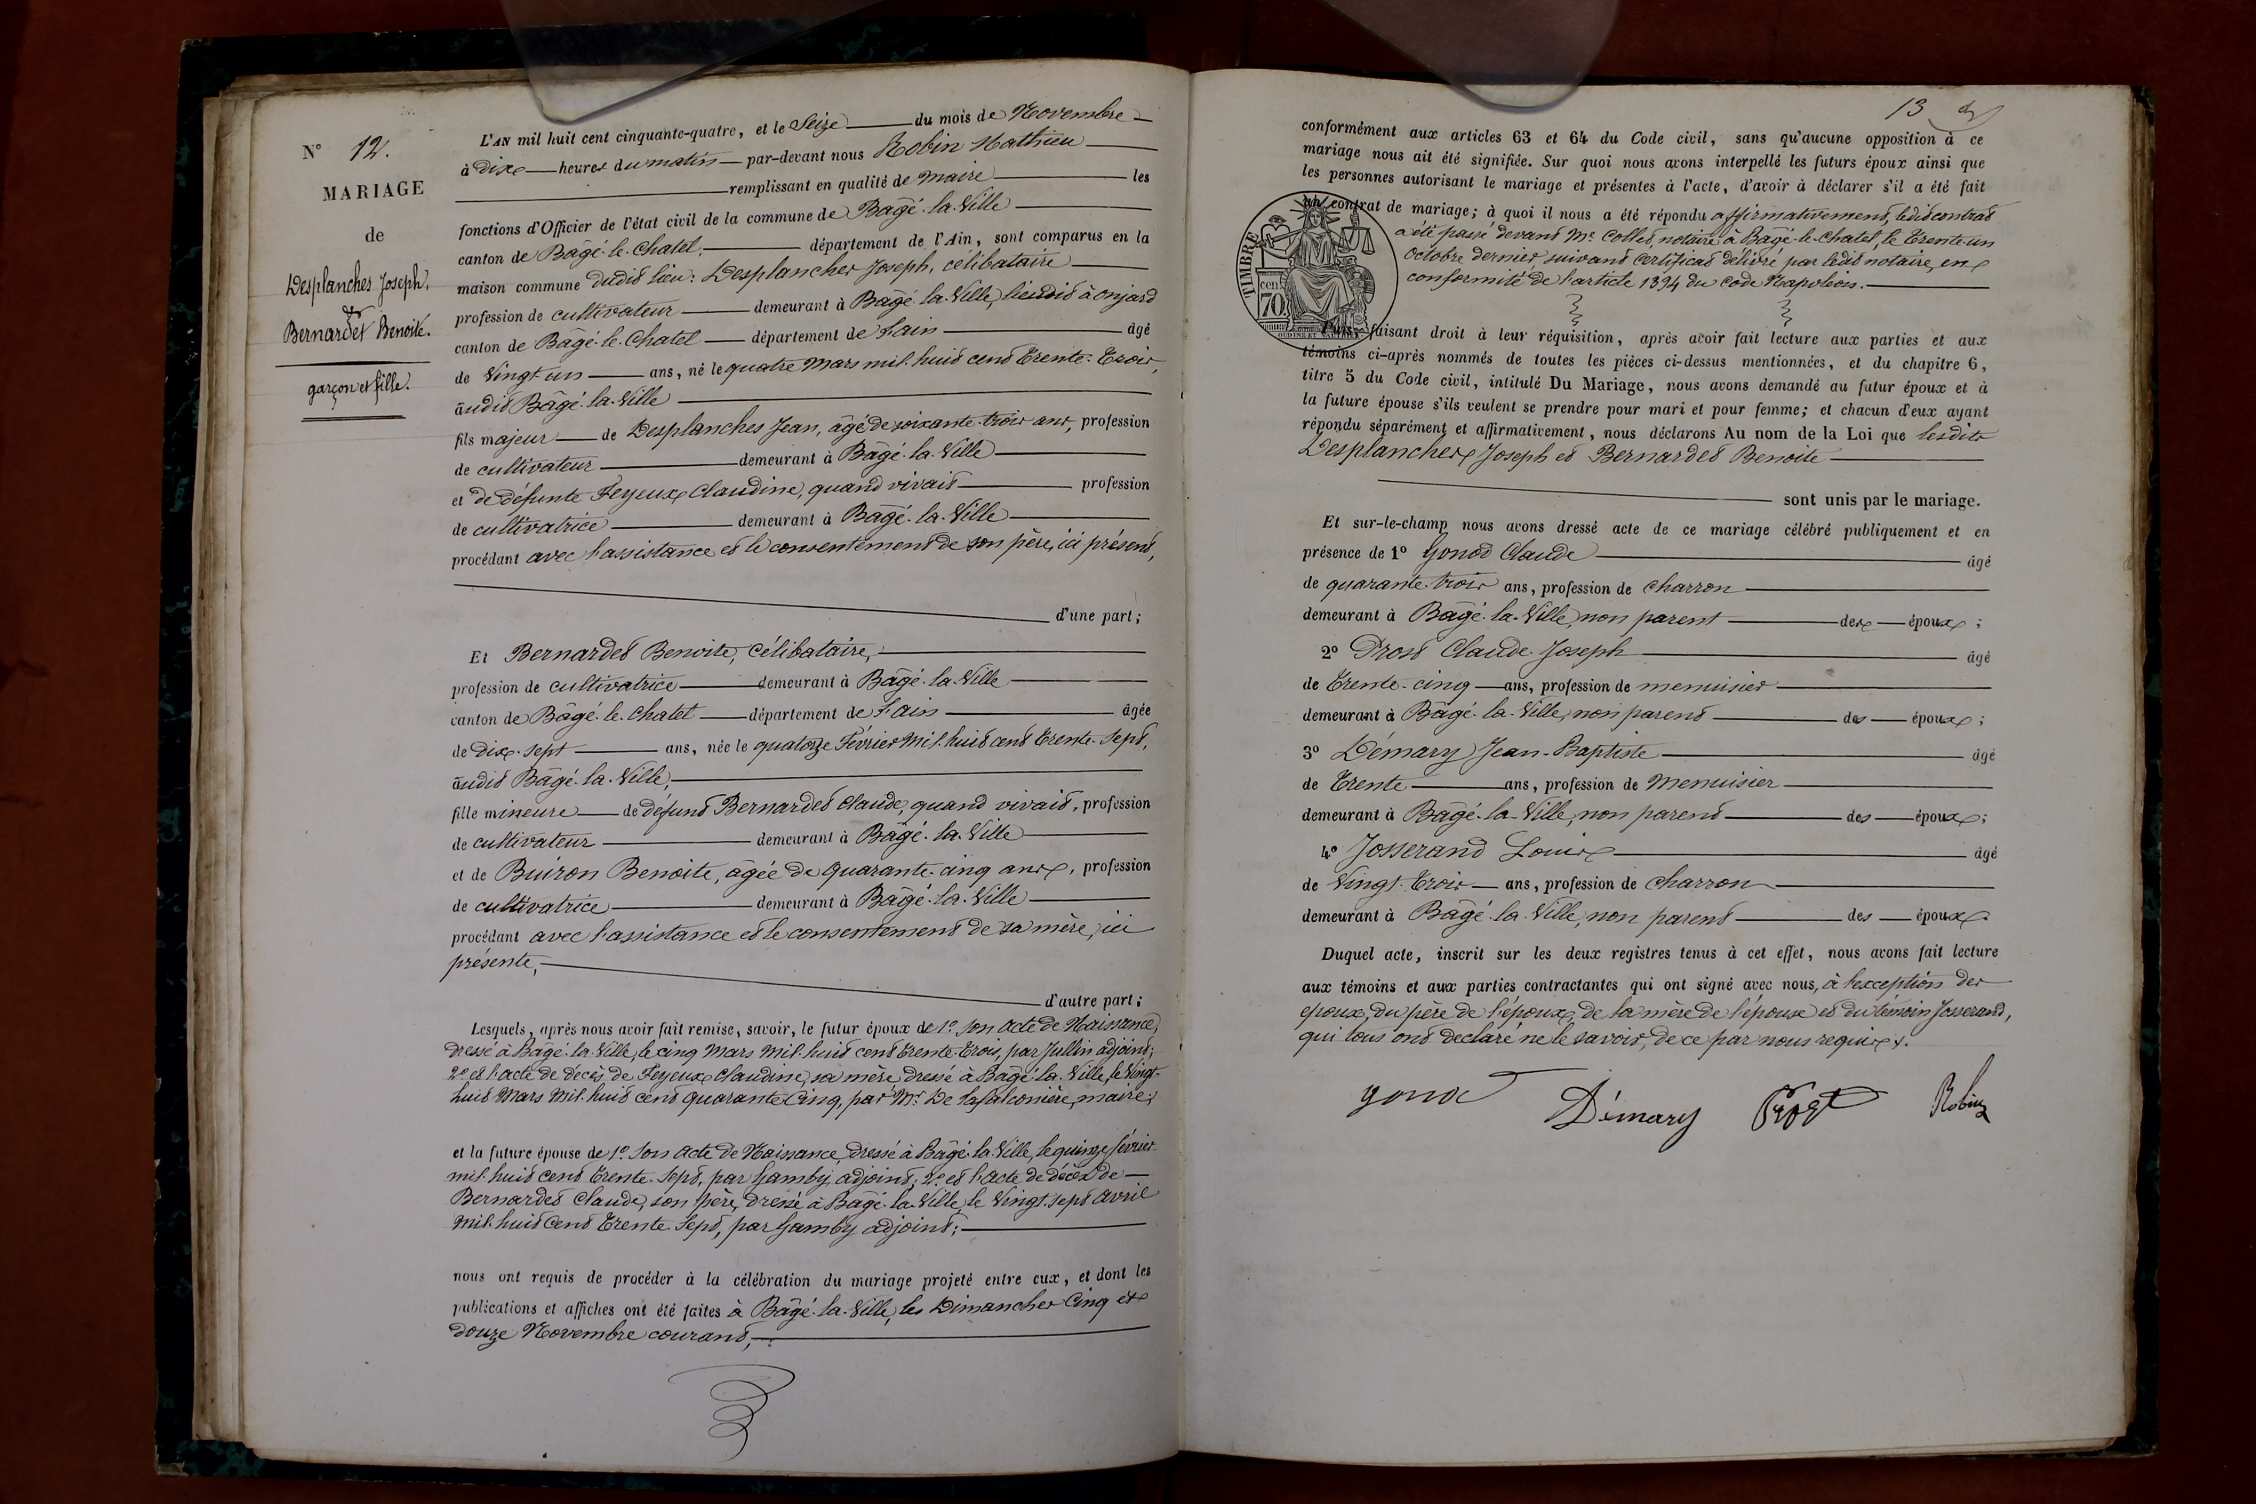 N° 12.
MARIAGE
de
Desplanches Joseph.
&
Bernardet Benoite.
garçon et fille.
L'AN mil huit cent cinquante-quatre, et le Seize du mois de Novembre
à dix heures du matin par-devant nous Robin Mathieu
remplissant en qualité de Maire les
fonctions d'Officier de l'état civil de la commune de Bâgé-la-Ville
canton de Bâgé-le-Chatel, département de l'Ain, sont comparus en la
maison commune dudit lieu: Desplanches Joseph, célibataire
profession de cultivateur demeurant à Bâgé-la-Ville, lieudit à onjard
canton de Bâgé-le-Chatel département de l'ain âgé
de Vingt un ans, né le quatre Mars mil-huit cent Trente-Trois,
audit Bâgé-la-Ville
fils majeur de Desplanches Jean, âgé de soixante-trois ans, profession
de cultivateur demeurant à Bâgé-la-Ville
et de défunte Feyeux Claudine, quand vivait profession
de cultivatrice demeurant à Bâgé-la-Ville
procédant avec l'assistance et le consentement de son père, ici présent,
d'une part;
Et Bernardet Benoite, célibataire,
profession de cultivatrice demeurant à Bâgé-la-Ville
canton de Bâgé-le-Chatel département de l'ain âgée
de dix-sept ans, née le quatorze Février Mil-huit cent Trente-Sept,
audit Bâgé-la-Ville,
fille mineure de défunt Bernardet Claude, quand vivait, profession
de cultivateur demeurant à Bâgé-la-Ville
et de Buiron Benoite, âgée de quarante-cinq ans, profession
de cultivatrice demeurant à Bâgé-la-Ville
procédant avec l'assistance et le consentement de sa mère, ici
présente,
d'autre part;
Lesquels, après nous avoir fait remise, savoir, le futur époux de 1° son acte de Naissance,
dressé à Bâgé-la-Ville, le cinq Mars Mil-huit cent Trente-Trois, par Jullin adjoint;
2° et l'acte de décès de Feyeux Claudine, sa mère, dressé à Bâgé-la-Ville, le Vingt-
huit Mars Mil-huit cent quarante-Cinq, par Mr De Lafalconière, maire;
et la future épouse de 1° son acte de Naissance, dressé à Bâgé-la-Ville, le quinze février
mil-huit cent Trente-Sept, par Gamby adjoint; 2° et l'acte de décès de
Bernardet Claude, son père, dressé à Bâgé-la-Ville, le Vingt-sept avril
Mil-huit Cent Trente-Sept, par Gamby adjoint;
nous ont requis de procéder à la célébration du mariage projeté entre eux, et dont les
publications et affiches ont été faites à Bâgé-la-Ville, les Dimanches Cinq et
douze Novembre courant,
13
conformément aux articles 63 et 64 du Code civil, sans qu'aucune opposition à ce
mariage nous ait été signifiée. Sur quoi nous avons interpellé les futurs époux ainsi que
les personnes autorisant le mariage et présentes à l'acte, d'avoir à déclarer s'il a été fait
un contrat de mariage; à quoi il nous a été répondu affirmativement, ledit contrat
a été passé devant Me Collet, notaire à Bâgé-le-Chatel, le Trente-un
Octobre dernier, suivant certificat délivré par ledit notaire, en
conformité de l'article 1394 du Code Napoléon.
TIMBRE
70 cent
Puis, faisant droit à leur réquisition, après avoir fait lecture aux parties et aux
témoins ci-après nommés de toutes les pièces ci-dessus mentionnées, et du chapitre 6,
titre 5 du Code civil, intitulé Du Mariage, nous avons demandé au futur époux et à
la future épouse s'ils veulent se prendre pour mari et pour femme; et chacun d'eux ayant
répondu séparément et affirmativement, nous déclarons Au nom de la Loi que lesdits
Desplanches Joseph et Bernardet Benoite
sont unis par le mariage.
Et sur-le-champ nous avons dressé acte de ce mariage célébré publiquement et en
présence de 1° Gonod Claude âgé
de quarante-trois ans, profession de charron
demeurant à Bâgé-la-Ville, non parent des époux;
2° Prost Claude-Joseph âgé
de Trente-cinq ans, profession de menuisier
demeurant à Bâgé-la-Ville, non parent des époux;
3° Démary Jean-Baptiste âgé
de Trente ans, profession de Menuisier
demeurant à Bâgé-la-Ville, non parent des époux;
4° Josserand Louis âgé
de Vingt-Trois ans, profession de charron
demeurant à Bâgé-la-Ville, non parent des époux.
Duquel acte, inscrit sur les deux registres tenus à cet effet, nous avons fait lecture
aux témoins et aux parties contractantes qui ont signé avec nous, à l'exception des
époux, du père de l'époux, de la mère de l'épouse et du témoin Josserand,
qui tous ont déclaré ne le savoir, de ce par nous requis.
gonod Démary Prost Robin